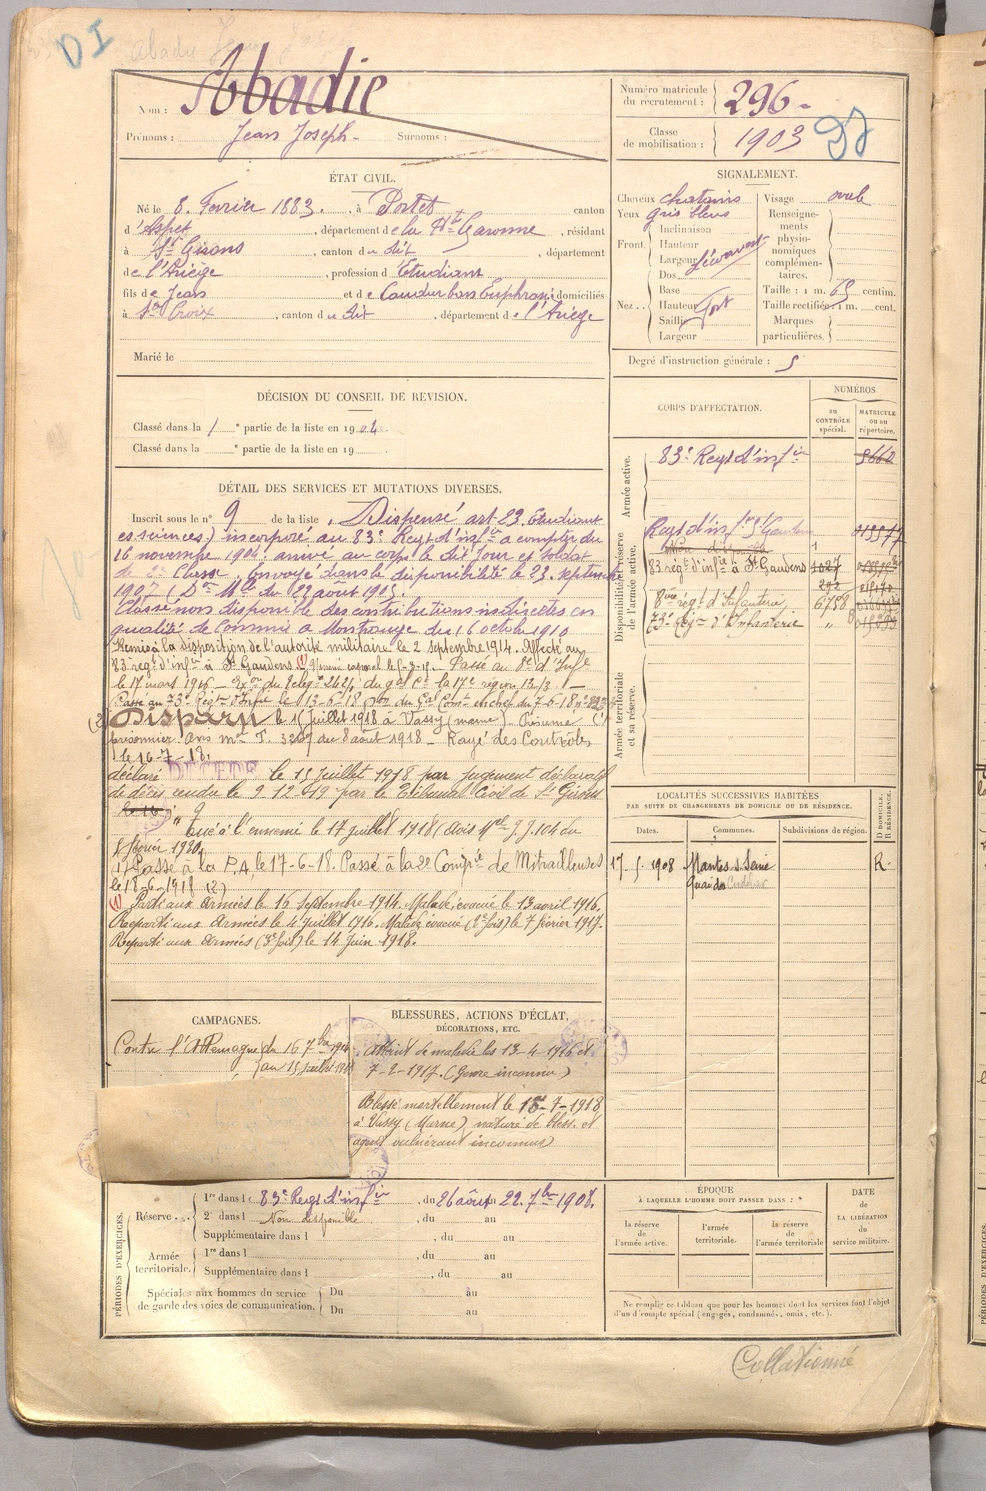 DI
Nom : Abadie
Prénoms : Jean Joseph Surnoms :
Numéro matricule du recrutement : 296
Classe de mobilisation : 1903
ÉTAT CIVIL.
Né le 8 Février 1883, à Portet canton
d'Aspet, département de la Hte Garonne, résidant
à St Girons, canton du dit, département
de l'Ariège, profession d'Etudiant
fils de Jean et de domiciliés
à Ste Croix, canton du dit, département de l'Ariège
Marié le
SIGNALEMENT.
Cheveux chatains
Yeux gris bleus
Front
Inclinaison
Hauteur
Largeur
Nez
Dos
Base
Hauteur fort
Saillie
Largeur
Visage ovale
Renseignements physionomiques complémentaires.
Taille : 1 m. 69 centim.
Taille rectifiée : 1 m. cent.
Marques particulières.
Degré d'instruction générale : 5
DÉCISION DU CONSEIL DE REVISION.
Classé dans la 1 e partie de la liste en 1904.
Classé dans la e partie de la liste en 19
CORPS D'AFFECTATION.
NUMÉROS
au CONTRÔLE spécial.
MATRICULE ou au répertoire.
Armée active.
83e Regt d'infie
Disponibilité et réserve de l'armée active.
Regt d'infie St Gaudens
83 régt d'infie à St Gaudens 1027
292
8ème regt d'Infanterie 6758
73e Regt d'Infanterie "
Armée territoriale et sa réserve.
DÉTAIL DES SERVICES ET MUTATIONS DIVERSES.
Inscrit sous le n° 9 de la liste, Dispensé art 23 Etudiant
es sciences) incorporé au 83e Regt d'infie a compter du
16 novembre 1904. arrivé au corps le dit jour et soldat
de 2e Classe. Envoyé dans la disponibilité le 23 septembre
1905 (Don Mlle du 22 août 1905.)
Classé non disponible des contributions indirectes en
qualité de Commis a Montrouge du 16 octobre 1910
Remis à la disposition de l'autorité militaire le 2 septembre 1914. Affecté au
83 regt d'infie à St Gaudens (1) Passé au 8e d'Infie
le 17 mars 1916
Passé au 73e Regt d'Infie le 13-6-18
(2) Disparu le 15 Juillet 1918 à Vassy (marne) - Présumé
prisonnier Avis mel T. du 8 août 1918 - Rayé des Contrôles
le 16-7-18.
déclaré DÉCÉDÉ le 15 juillet 1918 par jugement déclaratif
de décès rendu le 9-12-19 par le Tribunal Civil de St Girons
tué à l'ennemi le 17 juillet 1918 (avis Mel J.J. 104 du
février 1920
(1) Passé à la P.A. le 17-6-18. Passé à la 2e Compie de Mitrailleuses
le 18-6-1918 (2)
(1) Parti aux Armées le 16 septembre 1914. Malade évacué le 13 avril 1916.
Reparti aux Armées le 4 juillet 1916. Malade évacué (2e fois) le 7 février 1917.
Reparti aux Armées (3e fois) le 14 Juin 1918.
LOCALITÉS SUCCESSIVES HABITÉES
PAR SUITE DE CHANGEMENTS DE DOMICILE OU DE RÉSIDENCE.
Dates. Communes. Subdivisions de région. D DOMICILE. R RÉSIDENCE.
17.5.1908 Mantes s Seine R
Quai des Cordeliers
CAMPAGNES.
Contre l'Allemagne du 16 7bre 1914
au 15 juillet 1918
BLESSURES, ACTIONS D'ÉCLAT,
DÉCORATIONS, ETC.
Atteint de maladie les 13-4-1916 et
7-2-1917. (Genre inconnu)
Blessé mortellement le 15-7-1918
à Vassy (Marne) nature de bless. et
agent vulnérant inconnus)
PÉRIODES D'EXERCICES.
Réserve
1re dans l 83e Regt d'infie, du 26 août au 22 7bre 1908.
2e dans l Non disponible, du au
Supplémentaire dans l, du au
Armée territoriale.
1re dans l, du au
Supplémentaire dans l, du au
Spéciales aux hommes du service
de garde des voies de communication.
Du au
Du au
ÉPOQUE
À LAQUELLE L'HOMME DOIT PASSER DANS :
la réserve de l'armée active.
l'armée territoriale.
la réserve de l'armée territoriale
DATE
de
LA LIBÉRATION
du
service militaire.
Ne remplir ce tableau que pour les hommes dont les services font l'objet
d'un décompte spécial (engagés, condamnés, omis, etc.).
Collationné